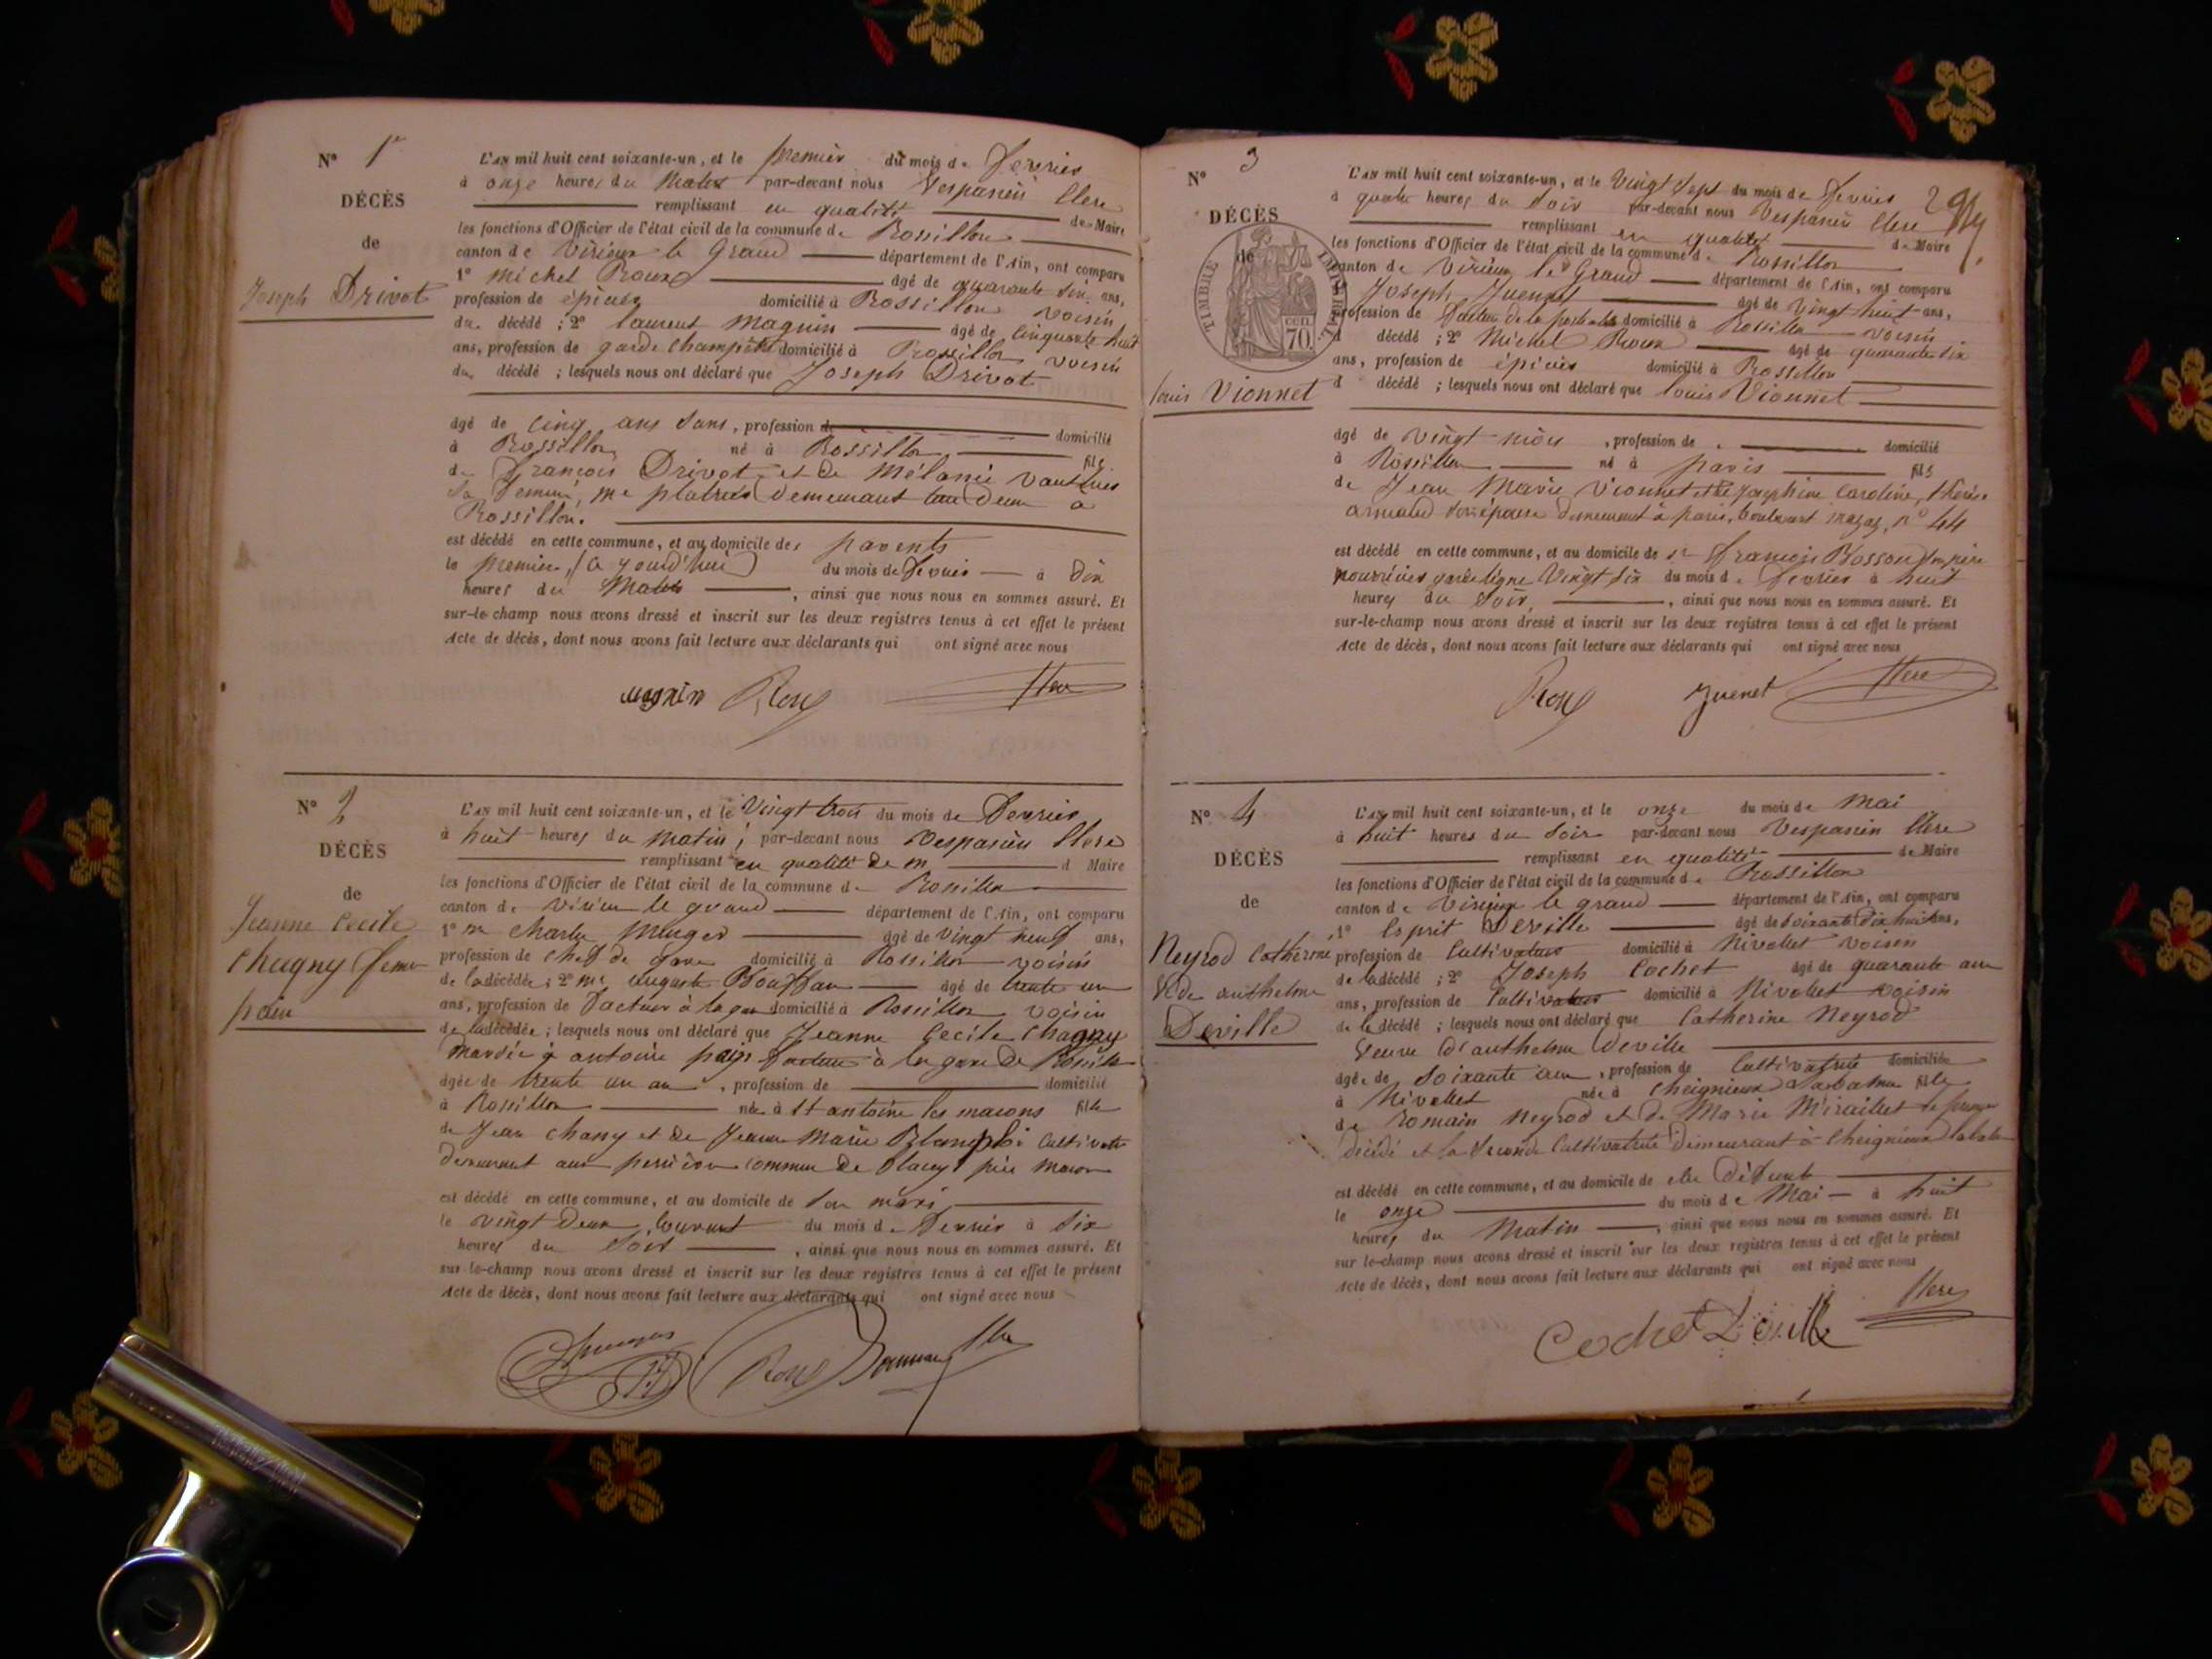 N° 1er
DÉCÈS
de
Joseph Drivot
L'AN mil huit cent soixante-un, et le premier du mois de fevrier
à onze heures du Matin par-devant nous Vespasien Clerc
remplissant en qualité de Maire
les fonctions d'Officier de l'état civil de la commune de Rossillon
canton de Virieux le Grand département de l'Ain, ont comparu
1° Michel Roux âgé de quarante six ans,
profession de épicier domicilié à Rossillon voisin
du décédé ; 2° laurent Magnin âgé de cinquante huit
ans, profession de garde champêtre domicilié à Rossillon voisin
du décédé ; lesquels nous ont déclaré que Joseph Drivot
âgé de cinq ans sans, profession de domicilié
à Rossillon né à Rossillon fils
de françois Drivot et de Mélanie
sa femme, demeurant à
Rossillon.
est décédé en cette commune, et au domicile des parents
le premier, (a'jourd'hui) du mois de fevrier à dix
heures du Matin , ainsi que nous nous en sommes assuré. Et
sur-le-champ nous avons dressé et inscrit sur les deux registres tenus à cet effet le présent
Acte de décès, dont nous avons fait lecture aux déclarants qui ont signé avec nous
magnin Roux Clerc
N° 2
DÉCÈS
de
Jeanne Cecile
Chagny femme
L'AN mil huit cent soixante-un, et le Vingt trois du mois de fevrier
à huit heures du matin, par-devant nous Vespasien Clerc
remplissant en qualité de m d Maire
les fonctions d'Officier de l'état civil de la commune de Rossillon
canton de Virieu le grand département de l'Ain, ont comparu
1° m Charles âgé de vingt neuf ans,
profession de chef de gare domicilié à Rossillon voisin
de la décédée ; 2° mr auguste âgé de trente un
ans, profession de facteur à la gare domicilié à Rossillon voisin
de la décédée ; lesquels nous ont déclaré que Jeanne Cecile Chagny
mariée à antoine facteur à la gare de Rossillon
âgée de trente un an , profession de domicilié
à Rossillon née à St antoine les macons fille
de Jean et de Jeanne Marie
demeurant commune de
est décédé en cette commune, et au domicile de son mari
le vingt deux courant du mois de fevrier à six
heures du soir , ainsi que nous nous en sommes assuré. Et
sur-le-champ nous avons dressé et inscrit sur les deux registres tenus à cet effet le présent
Acte de décès, dont nous avons fait lecture aux déclarants qui ont signé avec nous
Roux
N° 3
DÉCÈS
de
TIMBRE IMPERIAL
CEN. 70
louis Vionnet
L'AN mil huit cent soixante-un, et le Vingt Sept du mois de fevrier
à quatre heures du soir par-devant nous Vespasien Clerc
remplissant en qualité de Maire
les fonctions d'Officier de l'état civil de la commune de Rossillon
canton de Virieux le Grand département de l'Ain, ont comparu
Joseph Juenet âgé de vingt huit ans,
profession de facteur de la poste domicilié à Rossillon voisin
d décédé ; 2° Michel Roux âgé de quarante six
ans, profession de épicier domicilié à Rossillon
d décédé ; lesquels nous ont déclaré que louis Vionnet
âgé de vingt mois , profession de domicilié
à Rossillon né à paris fils
de Jean Marie Vionnet et de Josephine Caroline, therèse
arnaud son épouse demeurant à paris, boulevart mazas, n° 44
est décédé en cette commune, et au domicile de sr françois
vingt six du mois de fevrier à huit
heures du soir, , ainsi que nous nous en sommes assuré. Et
sur-le-champ nous avons dressé et inscrit sur les deux registres tenus à cet effet le présent
Acte de décès, dont nous avons fait lecture aux déclarants qui ont signé avec nous
Roux Juenet Clerc
N° 4
DÉCÈS
de
Neyrod Catherine
Vve de anthelme
Deville
L'AN mil huit cent soixante-un, et le onze du mois de mai
à huit heures du soir par-devant nous Vespasien Clerc
remplissant en qualité de Maire
les fonctions d'Officier de l'état civil de la commune de Rossillon
canton de Virieux le grand département de l'Ain, ont comparu
1° Esprit Deville âgé de soixante dix huit ans,
profession de Cultivateur domicilié à Nivollet voisin
de la décédé ; 2° Joseph Cochet âgé de quarante ans
ans, profession de Cultivateur domicilié à Nivollet voisin
de la décédé ; lesquels nous ont déclaré que Catherine Neyrod
Veuve d'anthelme Deville
âgée de soixante ans , profession de Cultivatrice domiciliée
à Nivollet née à Cheignieux Labalme fille
de Romain Neyrod et de Marie Miraillet le premier
décédé et la seconde Cultivatrice demeurant à Cheignieux labalme
est décédé en cette commune, et au domicile de elle défunte
le onze du mois de Mai à huit
heures du Matin , ainsi que nous nous en sommes assuré. Et
sur le-champ nous avons dressé et inscrit sur les deux registres tenus à cet effet le présent
Acte de décès, dont nous avons fait lecture aux déclarants qui ont signé avec nous
Cochet Deville Clerc